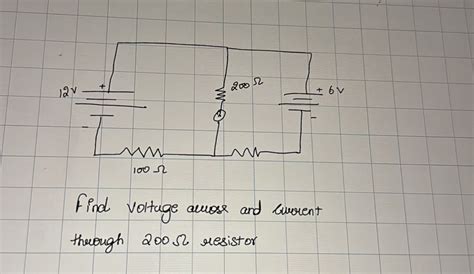 12V
+
200 Ω
+ 6V
-
-
100 Ω
Find voltage across and current
through 200 Ω resistor